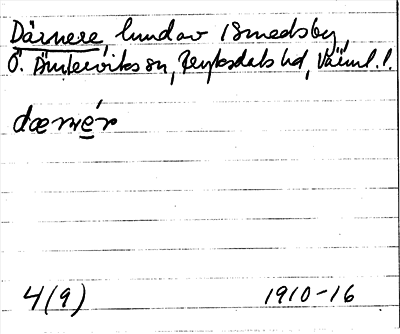 Därnere, lund av Smedsby,
Ö. Ämterviks sn, Fryksdals hd, Värml. l.
dærnér
4(9) 1910-16